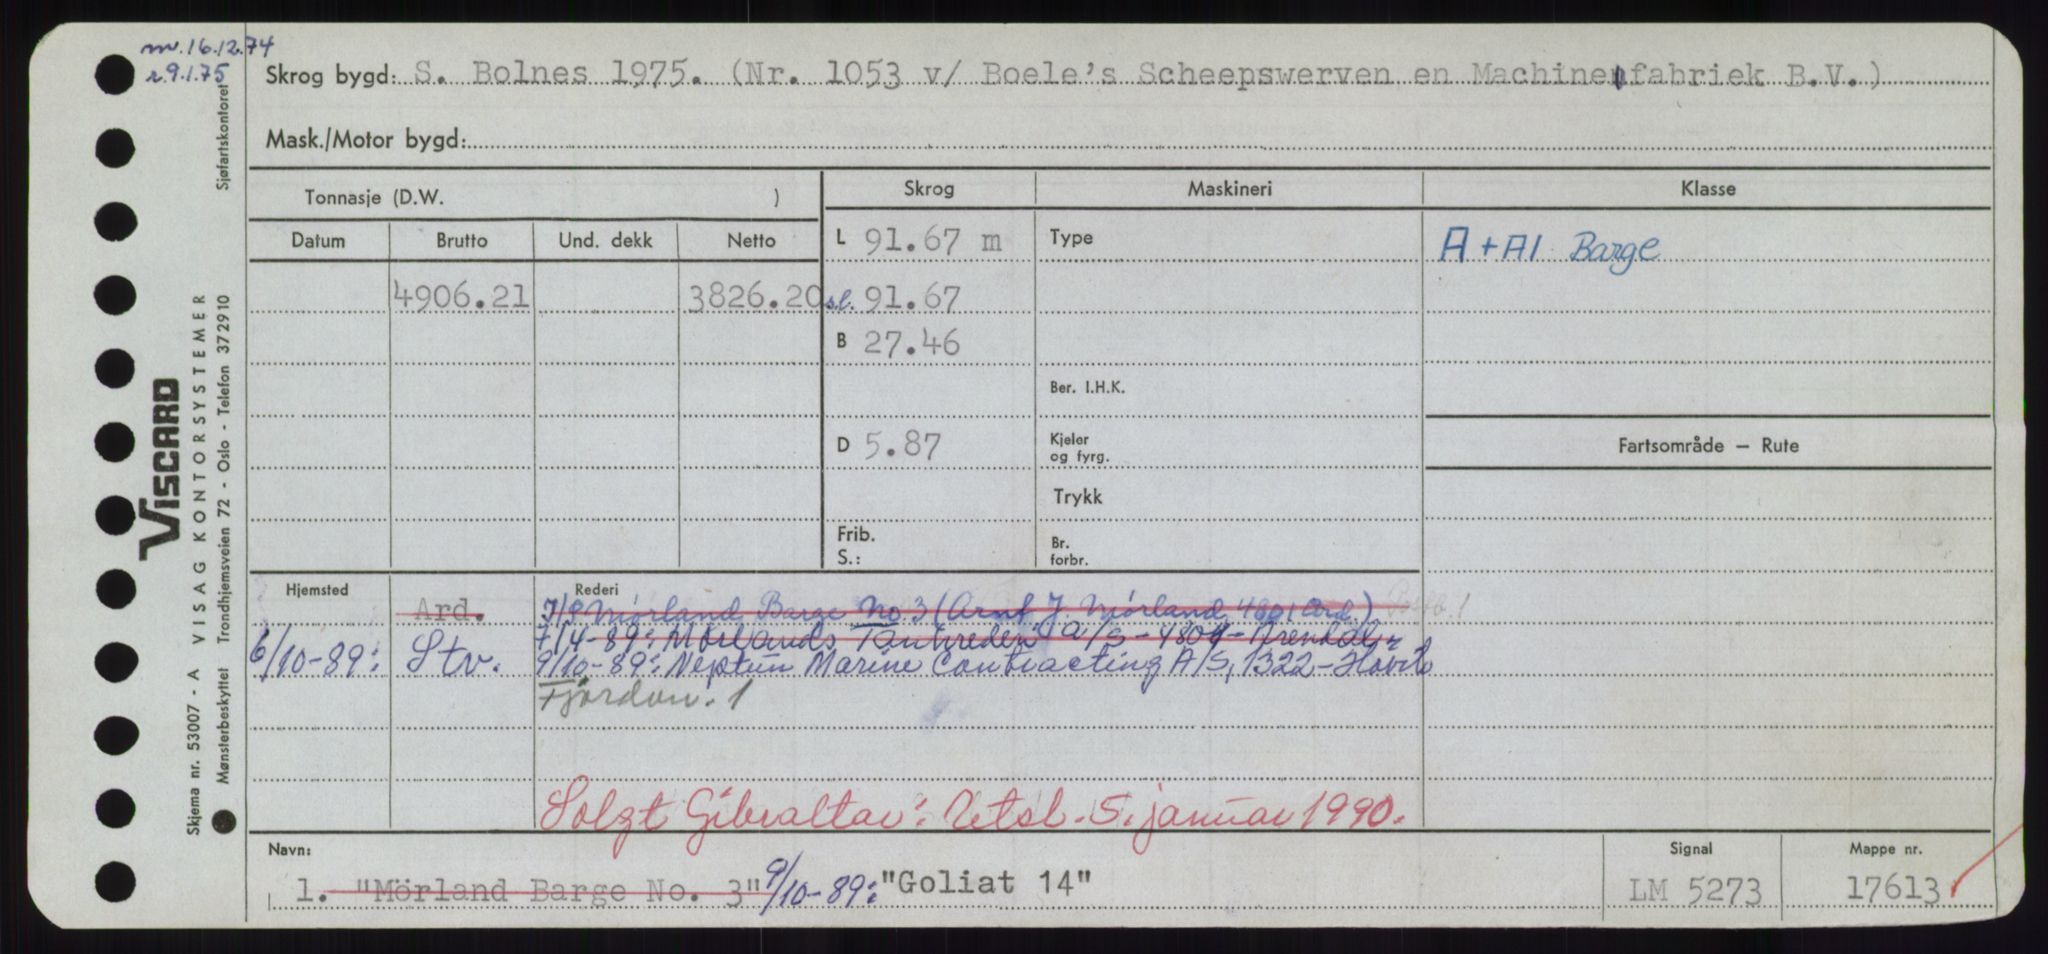 mv. 16.12.74
r. 9.1.75
Skrog bygd: S. Bolnes 1975. (Nr. 1053 v/ Boele's Scheepswerven en Machinenfabriek B.V.)
Mask./Motor bygd:
Tonnasje (D.W. )
Skrog Maskineri Klasse
Datum Brutto Und. dekk Netto
L 91.67 m Type A + A1 Barge
4906.21 3826.20 s.l. 91.67
B 27.46
Ber. I.H.K.
D 5.87 Kjeler og fyrg. Fartsområde — Rute
Trykk
Frib. S.: Br. forbr.
Hjemsted Rederi
Ard. 7/8 Mörland Barge No 3 (Arnt J. Mörland, 4801 Ard.)
7/4-89: Mörlands Tankrederi A/S - 4804 - Arendal
6/10-89: Stv. 9/10-89: Neptun Marine Contracting A/S, 1322 - Hövik
Fjordvn. 1
Solgt Gibraltar: Utsl. 5. januar 1990.
Navn: Signal Mappe nr.
1. "Mörland Barge No. 3" 9/10-89: "Goliat 14" LM 5273 17613
VISCARD
Skjema nr. 53007 - A VISAG KONTORSYSTEMER
Mønsterbeskyttet Trondhjemsveien 72 - Oslo - Telefon 372910 Sjøfartskontoret